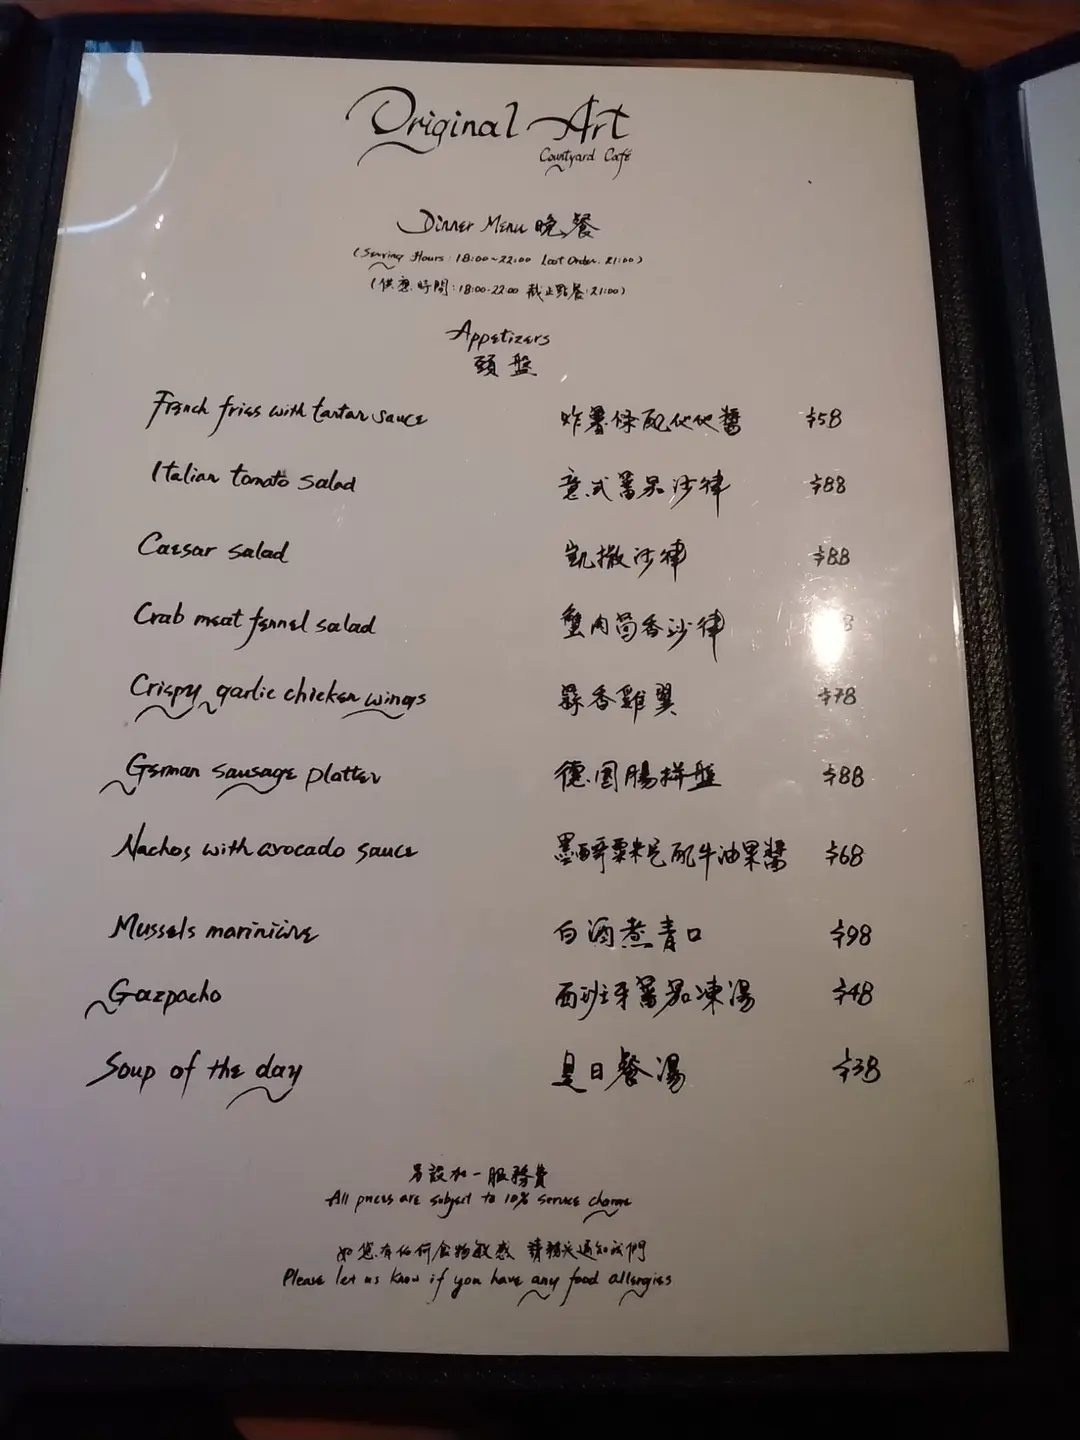 Original Art
Courtyard Café
Dinner Menu 晚餐
(Serving Hours: 18:00~22:00 Last Order: 21:00)
(供應時間:18:00-22:00 截止點餐:21:00)
Appetizers
頭盤
French fries with tartar sauce 炸薯條配他他醬 $58
Italian tomato salad 意式蕃茄沙律 $88
Caesar salad 凱撒沙律 $88
Crab meat fennel salad 蟹肉茴香沙律
Crispy garlic chicken wings 蒜香雞翼 $78
German sausage platter 德國腸拼盤 $88
Nachos with avocado sauce 墨西哥粟米片配牛油果醬 $68
Mussels mariniére 白酒煮青口 $98
Gazpacho 西班牙蕃茄凍湯 $48
Soup of the day 是日餐湯 $38
另設加一服務費
All prices are subject to 10% service charge
如您有任何食物敏感 請預先通知我們
Please let us know if you have any food allergies